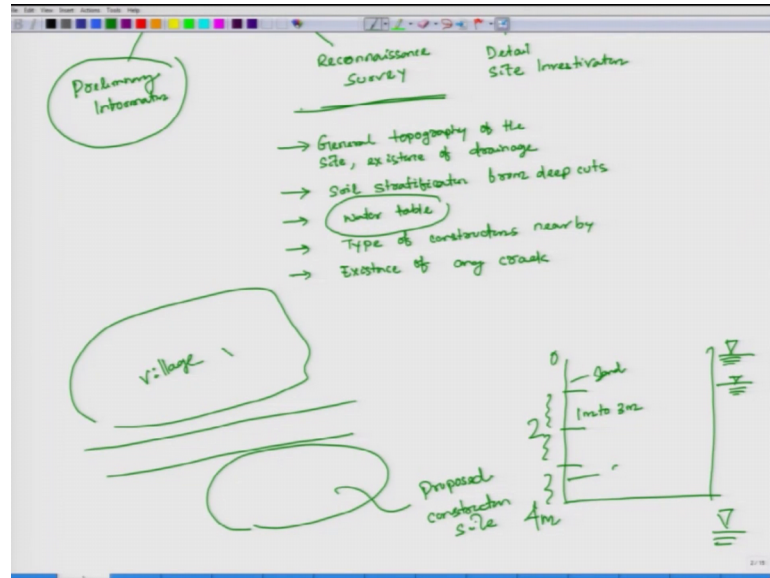 File Edit View Insert Actions Tools Help
Preliminary
Information
Reconnaissance
Survey
Detail
Site Investigation
→ General topography of the
site, existence of drainage
→ Soil stratification from deep cuts
→ water table
→ Type of constructions nearby
→ Existence of any crack
village
Proposed
construction
site
0
Sand
1m to 3m
2
4m
2/15